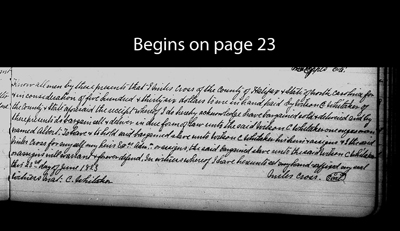 Begins on page 23
Know all men by these presents that I Miles Cross of the County of Halifax & State of North Carolina for
& in consideration of five hundred & thirty six dollars to me in hand paid by Vechon C Whitaker of
the County & State aforesaid the receipt whereof I do hereby acknowledge have bargained sold & delivered and by
these presents do bargain sell & deliver in due form of law unto the said C Whitaker one negro man
named Albert To have & to hold said bargained slave unto C Whitaker his heirs & assigns & I the said
Miles Cross for myself my heirs Exrs Admrs or assigns, the said bargained slave unto the said C Whitaker
assigns will warrant & forever defend In witness whereof I have hereunto set my hand affixed my seal
this day of June 18
Miles Cross Seal
Test C. Whitaker